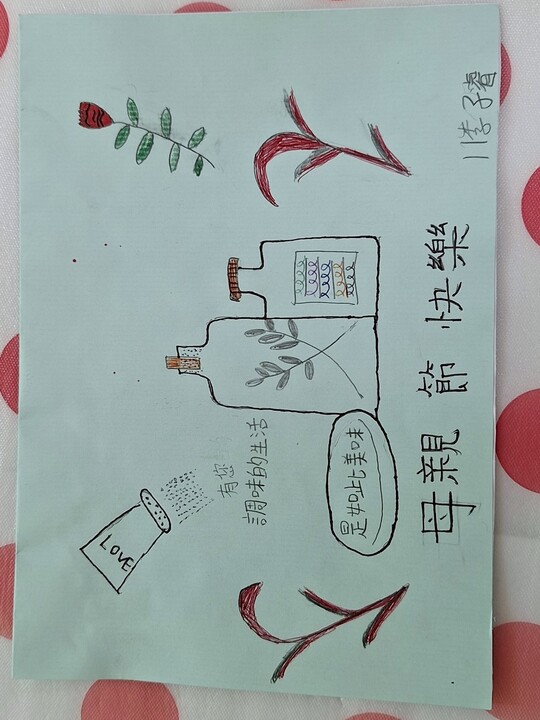 LOVE
有您
調味的生活
是如此美味
母親節快樂
11李子睿